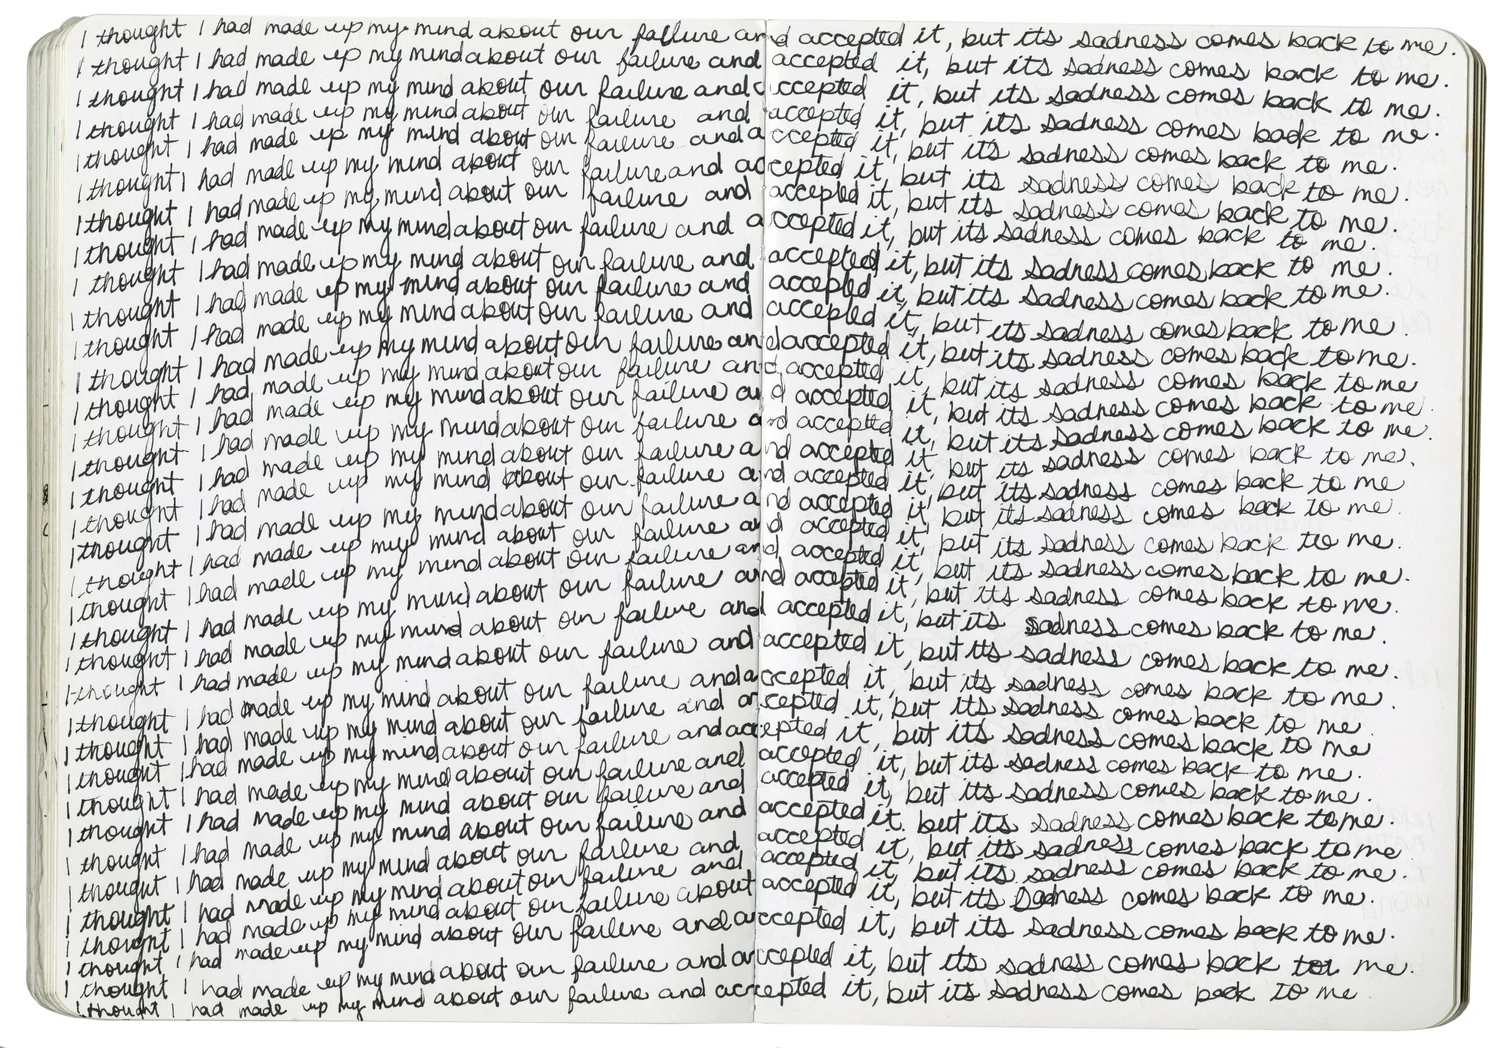 I thought I had made up my mind about our failure and accepted it, but its sadness comes back to me.
I thought I had made up my mind about our failure and accepted it, but its sadness comes back to me.
I thought I had made up my mind about our failure and accepted it, but its sadness comes back to me.
I thought I had made up my mind about our failure and accepted it, but its sadness comes back to me.
I thought I had made up my mind about our failure and accepted it, but its sadness comes back to me.
I thought I had made up my mind about our failure and accepted it, but its sadness comes back to me.
I thought I had made up my mind about our failure and accepted it, but its sadness comes back to me.
I thought I had made up my mind about our failure and accepted it, but its sadness comes back to me.
I thought I had made up my mind about our failure and accepted it, but its sadness comes back to me.
I thought I had made up my mind about our failure and accepted it, but its sadness comes back to me.
I thought I had made up my mind about our failure and accepted it, but its sadness comes back to me
I thought I had made up my mind about our failure and accepted it, but its sadness comes back to me.
I thought I had made up my mind about our failure and accepted it, but its sadness comes back to me
I thought I had made up my mind about our failure and accepted it, but its sadness comes back to me.
I thought I had made up my mind about our failure and accepted it, but its sadness comes back to me.
I thought I had made up my mind about our failure and accepted it, but its sadness comes back to me.
I thought I had made up my mind about our failure and accepted it, but its sadness comes back to me
I thought I had made up my mind about our failure and accepted it, but its sadness comes back to me.
I thought I had made up my mind about our failure and accepted it, but its sadness comes back to me.
I thought I had made up my mind about our failure and accepted it, but its sadness comes back to me.
I thought I had made up my mind about our failure and accepted it, but its sadness comes back to me.
I thought I had made up my mind about our failure and accepted it, but its sadness comes back to me.
I thought I had made up my mind about our failure and accepted it, but its sadness comes back to me.
I thought I had made up my mind about our failure and accepted it, but its sadness comes back to me.
I thought I had made up my mind about our failure and accepted it, but its sadness comes back to me
I thought I had made up my mind about our failure and accepted it, but its sadness comes back to me
I thought I had made up my mind about our failure and accepted it, but its sadness comes back to me.
I thought I had made up my mind about our failure and accepted it, but its sadness comes back to me.
I thought I had made up my mind about our failure and accepted it, but its sadness comes back to me.
I thought I had made up my mind about our failure and accepted it, but its sadness comes back to me
I thought I had made up my mind about our failure and accepted it, but its sadness comes back to me.
I thought I had made up my mind about our failure about accepted it, but its sadness comes back to me.
I thought I had made up my mind about our failure and accepted it, but its sadness comes back to me.
I thought I had made up my mind about our failure and accepted it, but its sadness comes back to me.
I thought I had made up my mind about our failure and accepted it, but its sadness comes back to me